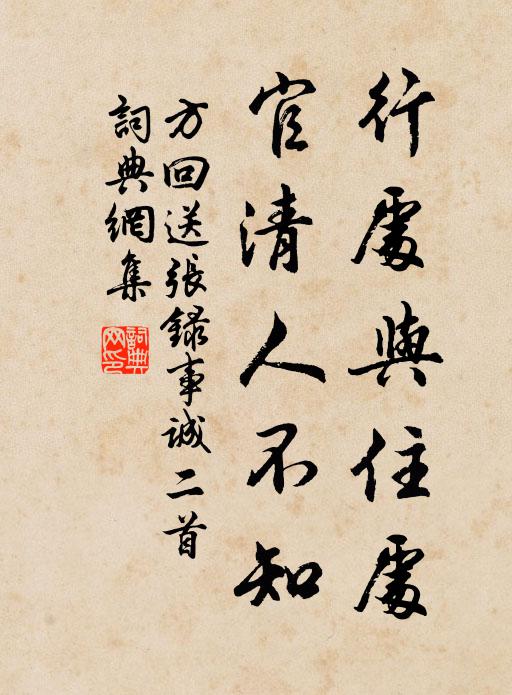 行處與住處
官清人不知
方回送張錄事誠二首
詞典網集
詞典網印